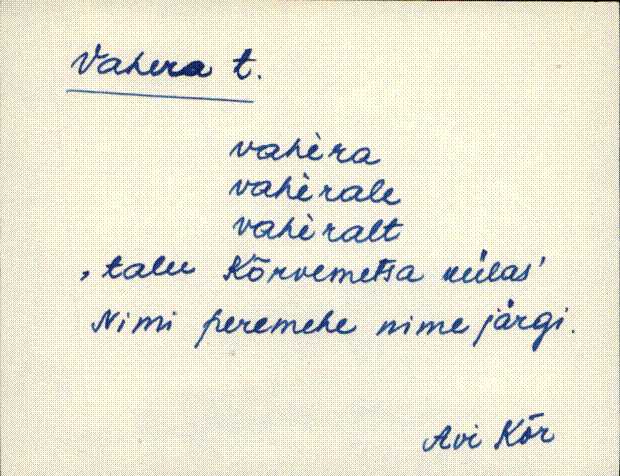 Vahera t.
vahèra
vahèrale
vahèralt
, talu Kõrvemetsa külas'
Nimi peremehe nime järgi.
Avi Kõr